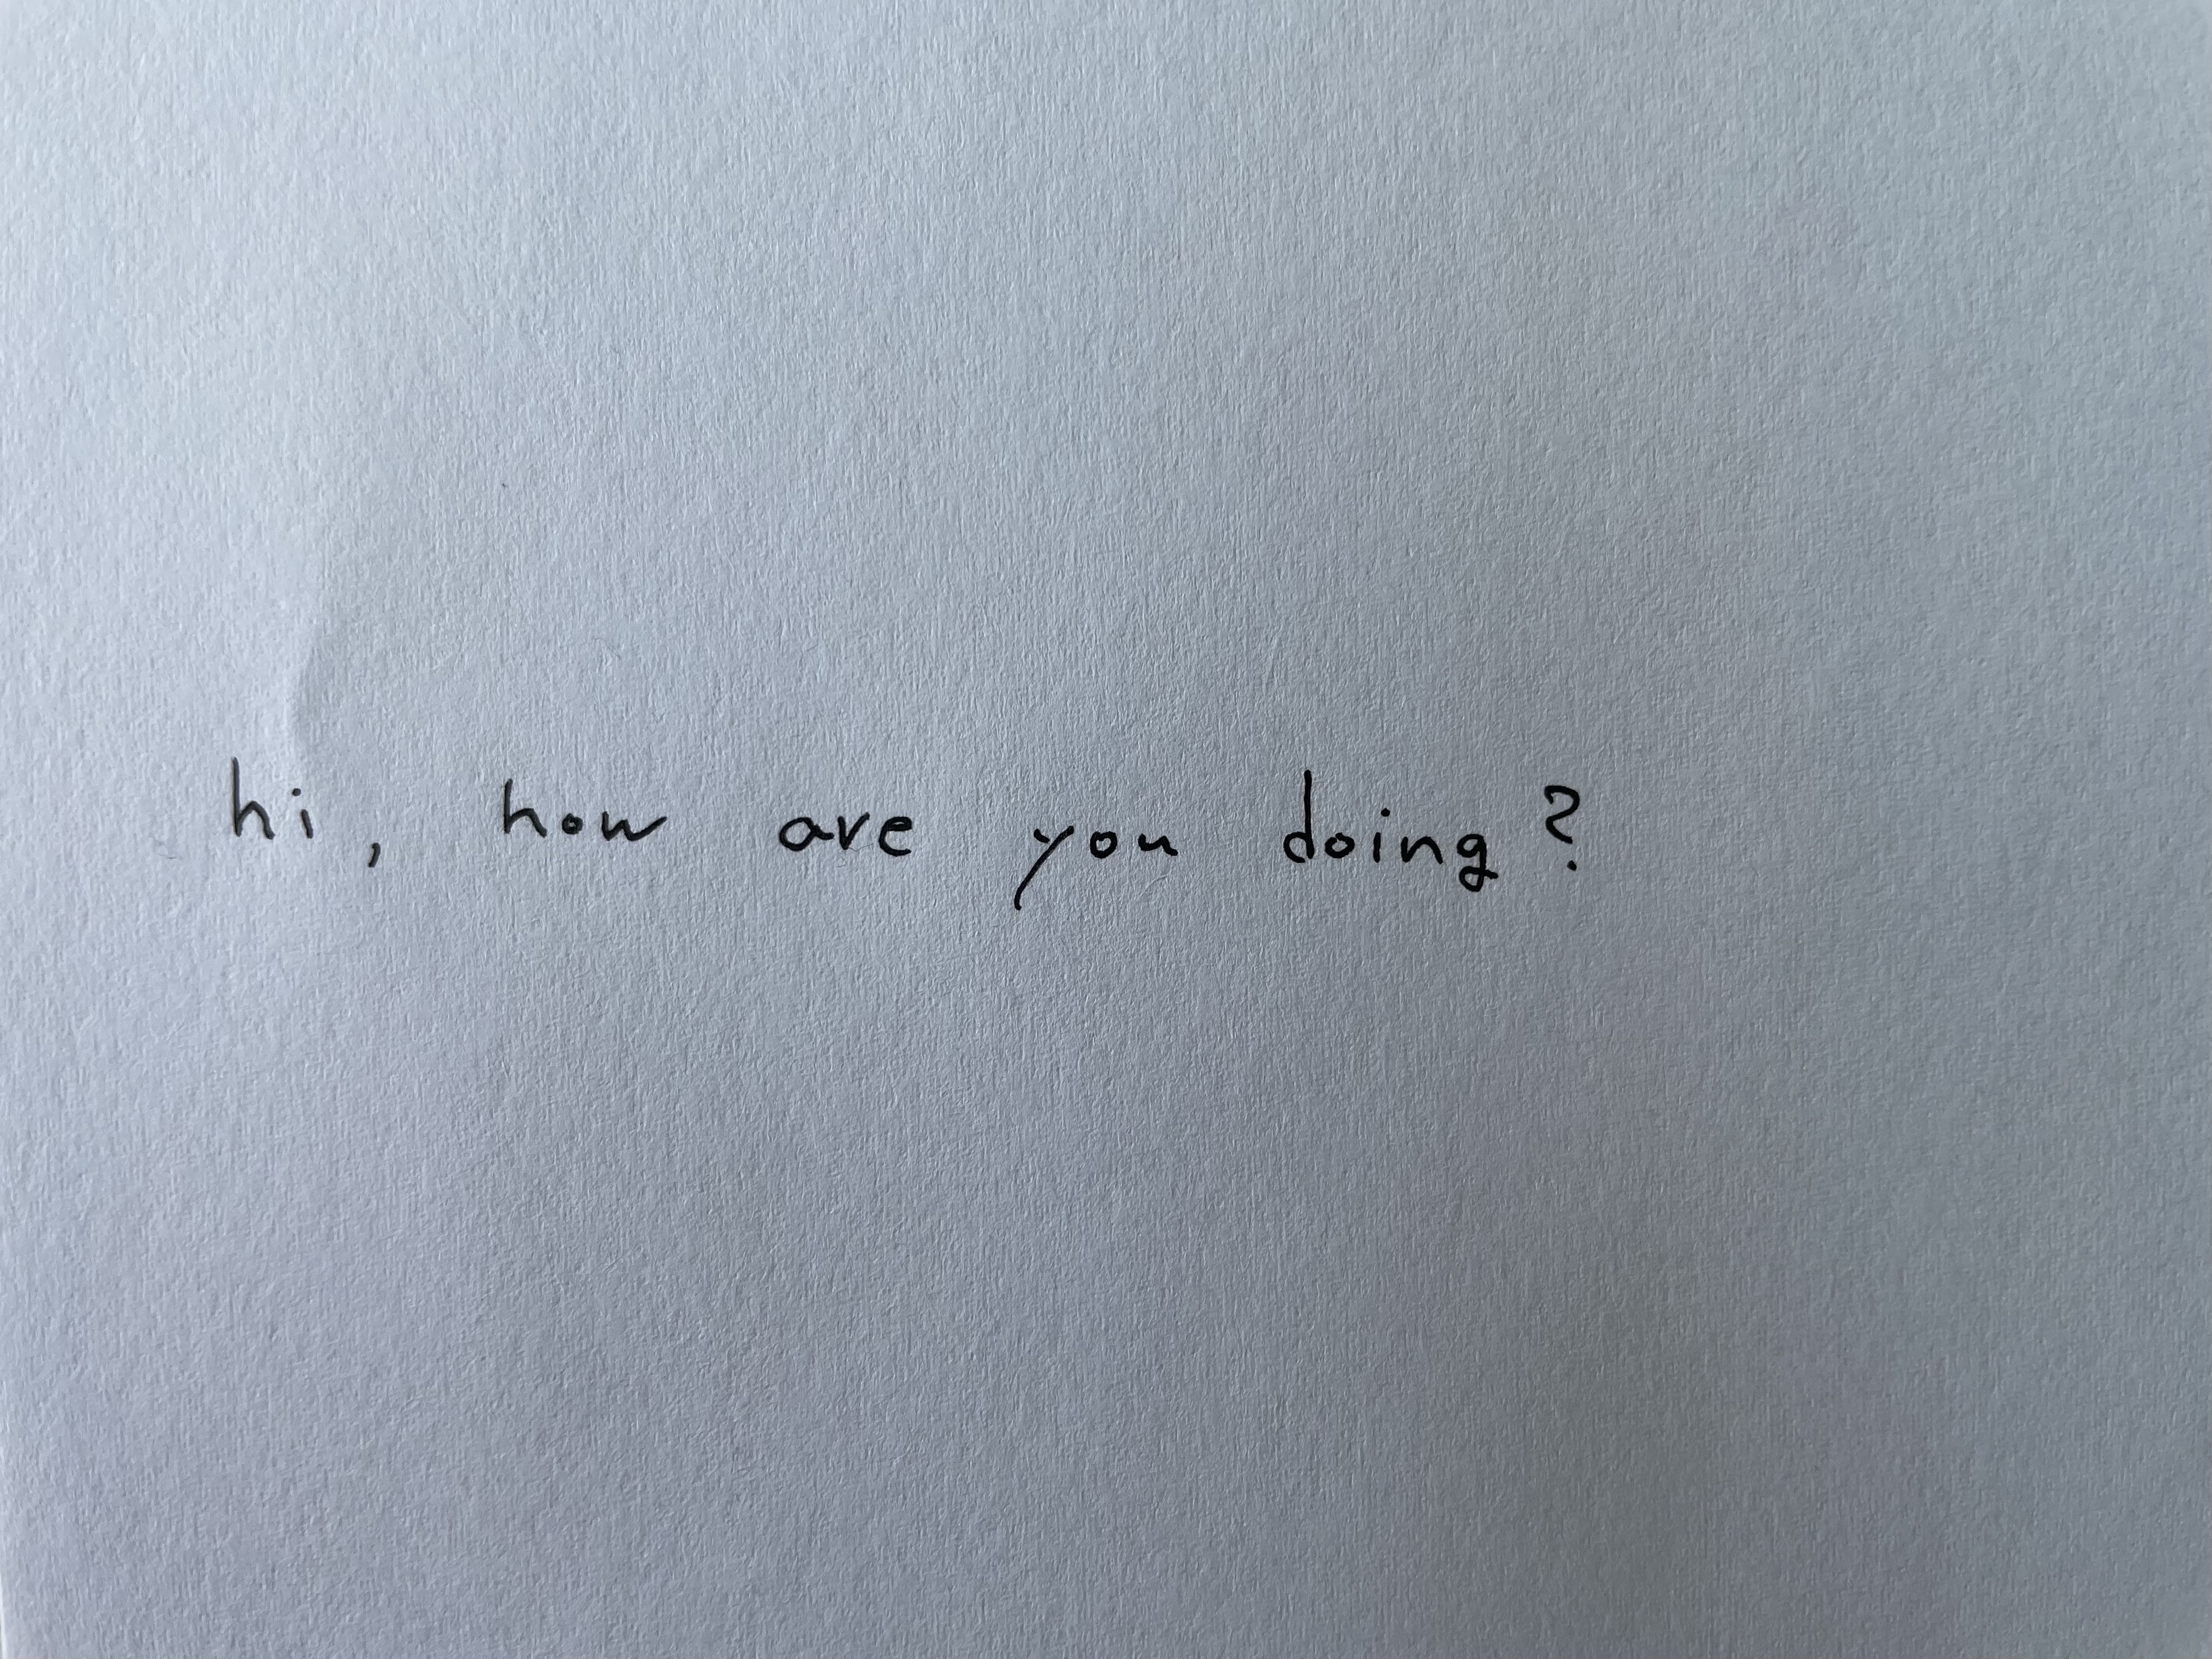 hi, how are you doing?